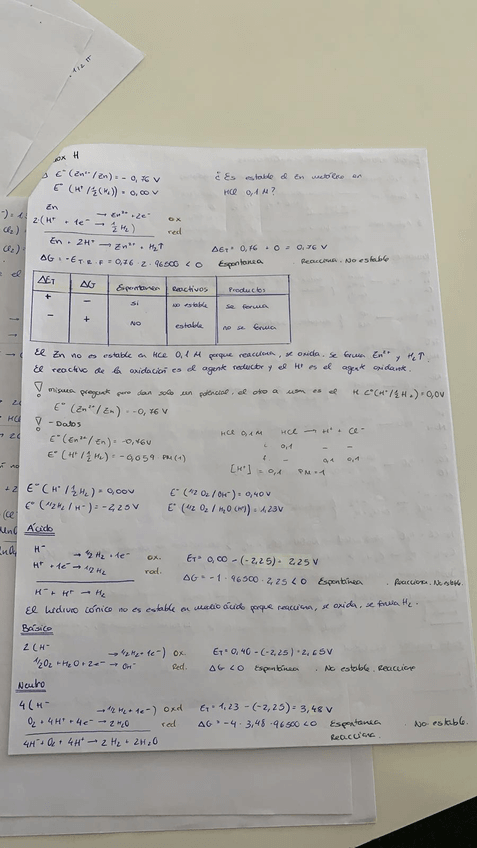 E⁻(Zn²⁺/Zn) = -0,76 V
¿Es estable el Zn metálico en
E⁻(H⁺/½(H₂)) = 0,00V
HCl 0,1 M?
Zn → Zn²⁺ + 2e⁻ ox
2(H⁺ + 1e⁻ → ½H₂) red
Zn + 2H⁺ → Zn²⁺ + H₂↑ ΔE_T = 0,76 + 0 = 0,76 V
ΔG = -E_T · 2 · F = 0,76 · 2 · 96500 < 0 Espontánea . Reacciona. No estable
ΔE_T ΔG Espontánea Reactivos Productos
+ - Sí no estable se forma
- + NO estable no se forma
El Zn no es estable en HCl 0,1 M porque reacciona, se oxida, se forma Zn²⁺ y H₂↑
El reactivo de la oxidación es el agente reductor y el H⁺ es el agente oxidante.
! misma pregunta pero dan solo un potencial, el otro a usar es el H E°(H⁺/½H₂) = 0,0V
E⁻(Zn²⁺/Zn) = -0,76 V
! - Datos
HCl 0,1M HCl → H⁺ + Cl⁻
E⁻(Zn²⁺/Zn) = -0,76V
0,1 - -
E°(H⁺/½H₂) = -0,059 · PH(1)
- 0,1 0,1
[H⁺] = 0,1 PH = 1
E⁻(H⁺/½H₂) = 0,00V E⁻(½O₂/OH⁻) = 0,40V
E°(½H₂/H⁻) = -2,25V E⁻(½O₂/H₂O(H⁺)) = 1,23V
Ácido
H⁻ → ½H₂ + 1e⁻ ox. E_T = 0,00 - (-2,25) = 2,25V
H⁺ + 1e⁻ → ½H₂ red. ΔG = -1 · 96500 · 2,25 < 0 Espontánea . Reacciona, No estable.
H⁻ + H⁺ → H₂
El hidruro iónico no es estable en medio ácido porque reacciona, se oxida, se forma H₂.
Básico
2(H⁻ → ½H₂ + 1e⁻) ox. E_T = 0,40 - (-2,25) = 2,65V
½O₂ + H₂O + 2e⁻ → OH⁻ Red. ΔG < 0 Espontánea . No estable. Reacciona
Neutro
4(H⁻ → ½H₂ + 1e⁻) oxd E_T = 1,23 - (-2,25) = 3,48V
O₂ + 4H⁺ + 4e⁻ → 2H₂O red ΔG = -4 · 3,48 · 96500 < 0 Espontánea . No estable.
Reacciona.
4H⁻ + O₂ + 4H⁺ → 2H₂ + 2H₂O